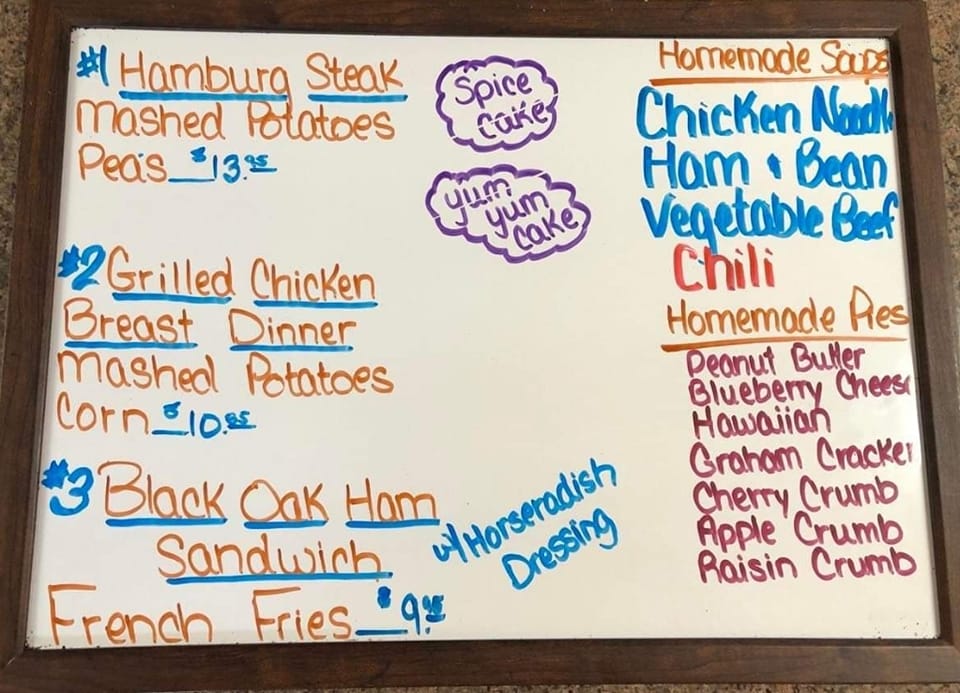 #1 Hamburg Steak
Mashed Potatoes
Peas $13.95
#2 Grilled Chicken
Breast Dinner
Mashed Potatoes
Corn $10.95
#3 Black Oak Ham
Sandwich
w/ Horseradish
Dressing
French Fries $9.95
Spice
Cake
Yum
Yum
Cake
Homemade Soups
Chicken Noodle
Ham & Bean
Vegetable Beef
Chili
Homemade Pies
Peanut Butter
Blueberry Cheese
Hawaiian
Graham Cracker
Cherry Crumb
Apple Crumb
Raisin Crumb